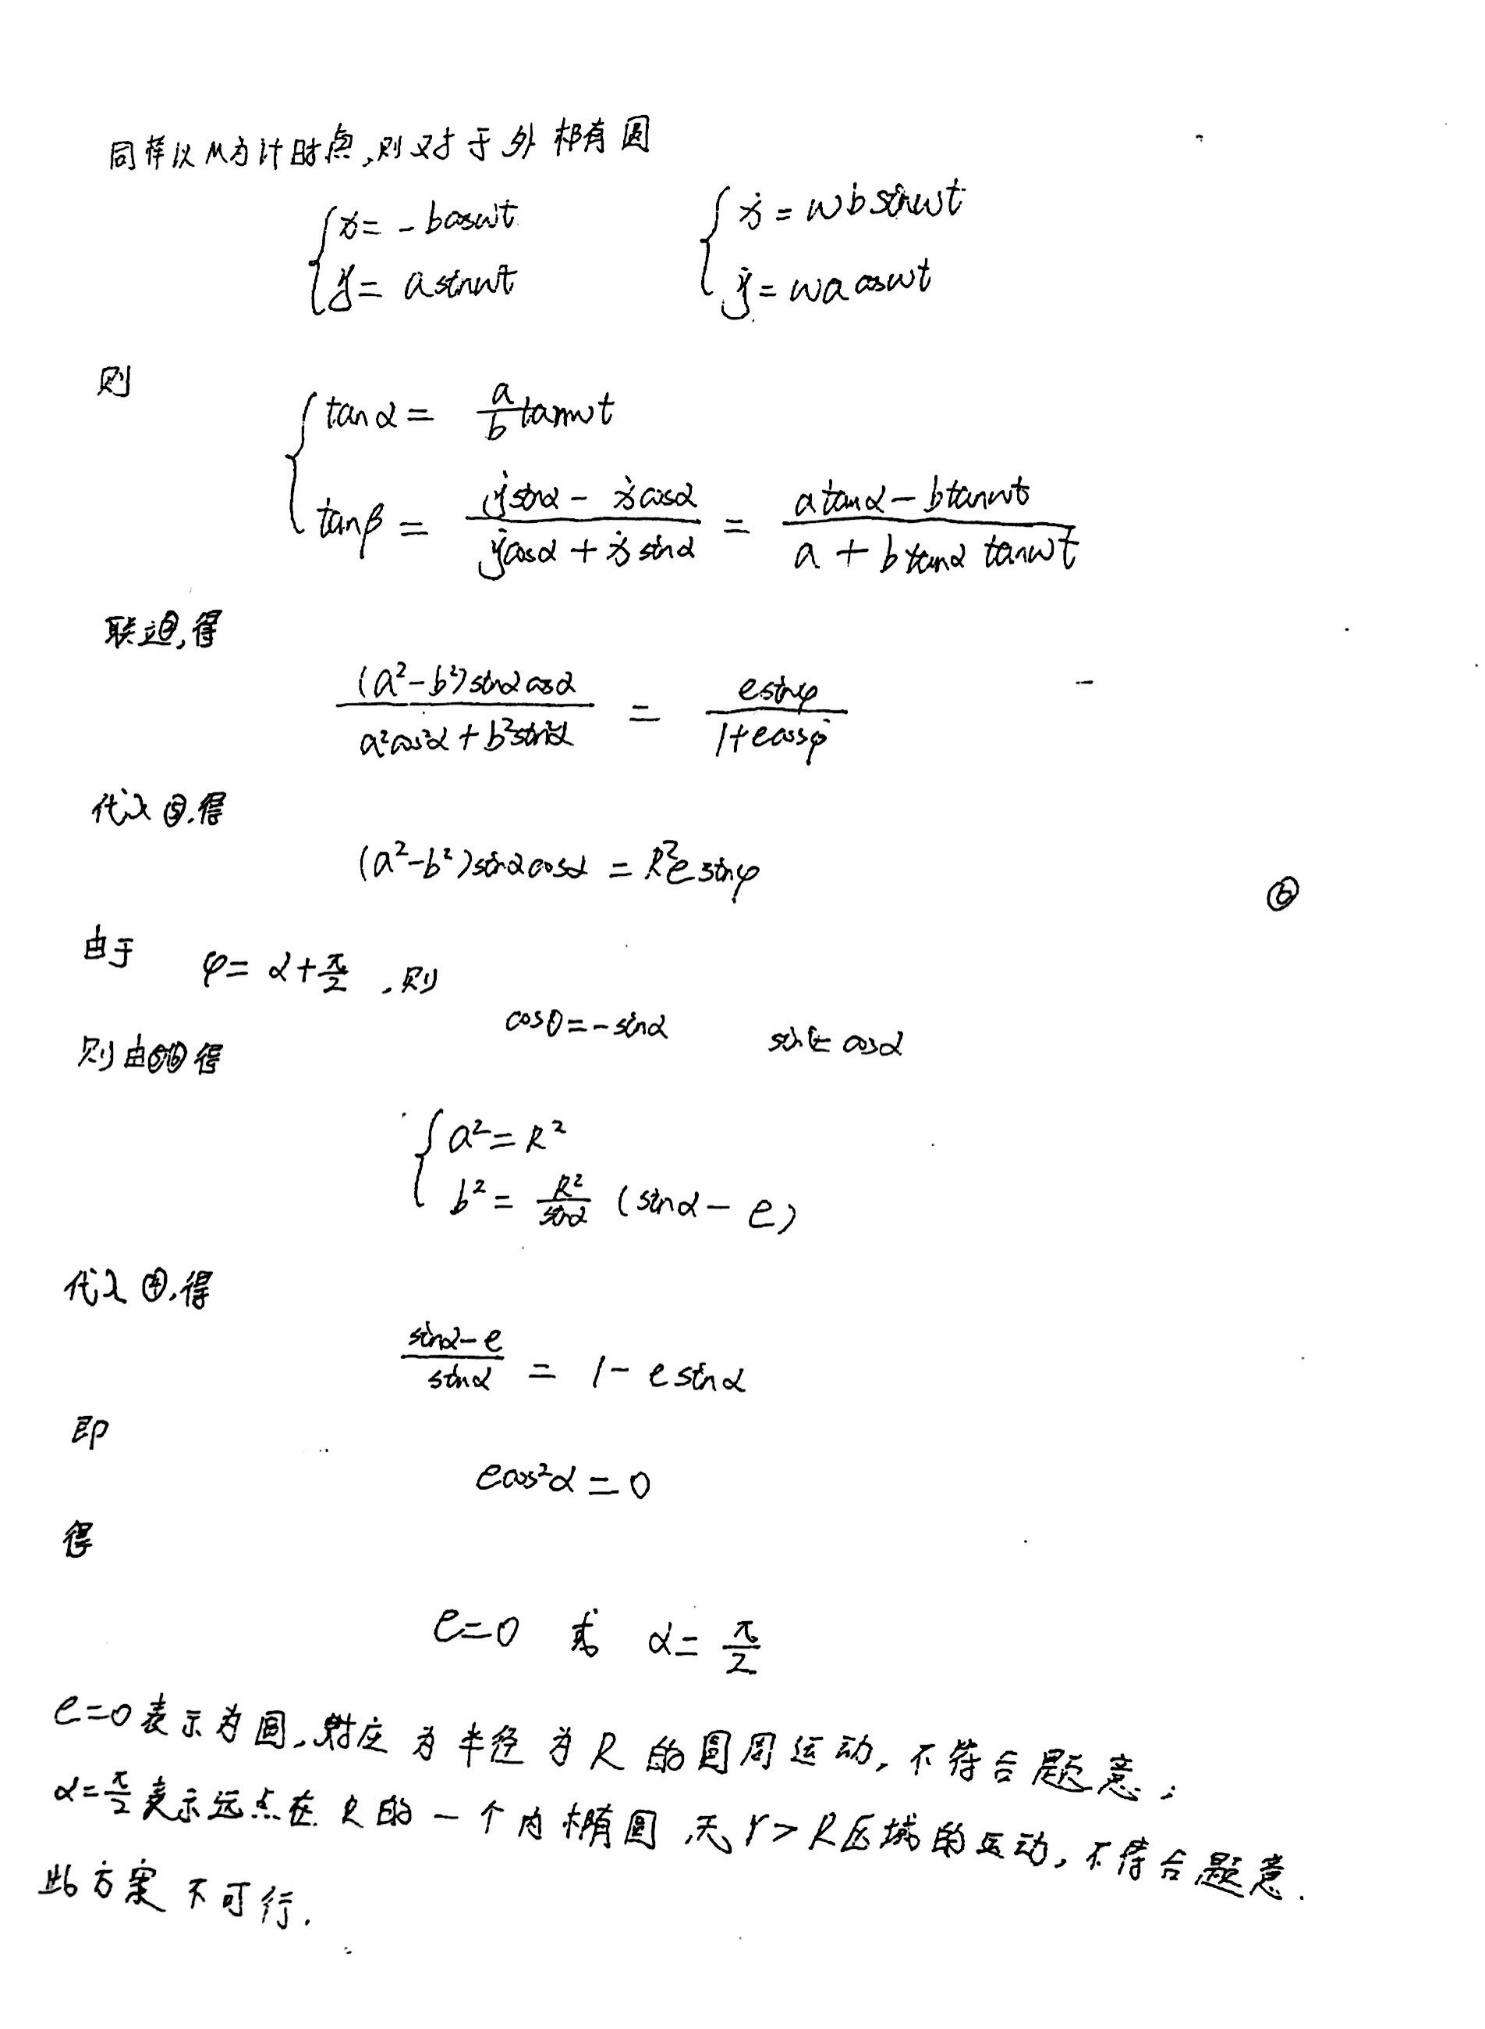 同样以M为计时点,则对于外椭圆
{ x = -b cosωt    { ẋ = ωb sinωt
{ y = a sinωt    { ẏ = ωa cosωt
则
{ tanα = a/b tanωt
{ tanβ = (ẏ sinα - ẋ cosα)/(ẏ cosα + ẋ sinα) = (a tanα - b tanωt)/(a + b tanα tanωt)
联立,得
(a²-b²) sinα cosα / (a²cos²α + b²sin²α) = e sinφ / (1+e cosφ)
代入⑤,得
(a²-b²) sinα cosα = R²e sinφ ⑥
由于 φ = α + π/2 ,则
cosθ = -sinα    sinθ = cosα
则由⑤⑥得
{ a² = R²
{ b² = R²/sinα (sinα - e)
代入④,得
(sinα - e)/sinα = 1 - e sinα
即
e cos²α = 0
得
e=0 或 α = π/2
e=0表示为圆,对应为半径为R的圆周运动,不符合题意;
α=π/2表示远点在R的一个内椭圆,无r>R区域的运动,不符合题意.
此方案不可行.